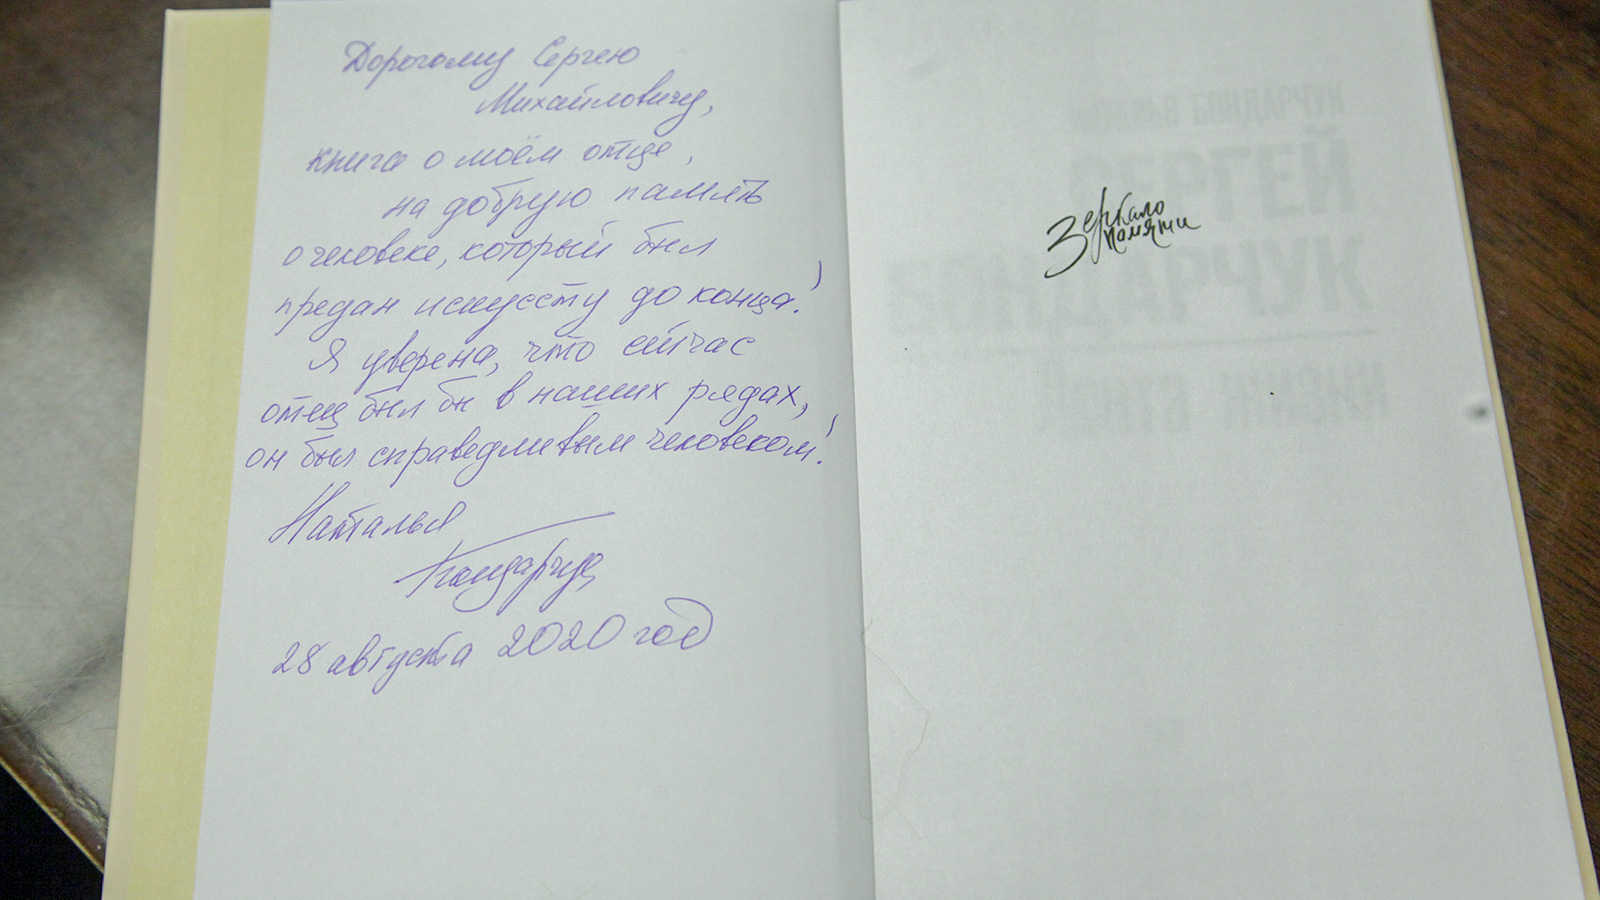 Дорогому Сергею
Михайловичу,
книга о моём отце,
на добрую память
о человеке, который был
предан искусству до конца!
Я уверена, что сейчас
отец был бы в наших рядах,
он был справедливым человеком!
Наталья
Бондарчук
28 августа 2020 год
Зеркало
памяти
СЕРГЕЙ
БОНДАРЧУК